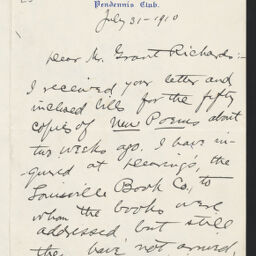 Pendennis Club.
July 31-1910
Dear Mr. Grant Richards:-
I received your letter and
inclosed bills for the fifty
copies of New Poems about
two weeks ago. I have in-
quired at Dearing's, the
Louisville Book Co, to
whom the books were
addressed but still
they have not arrived,